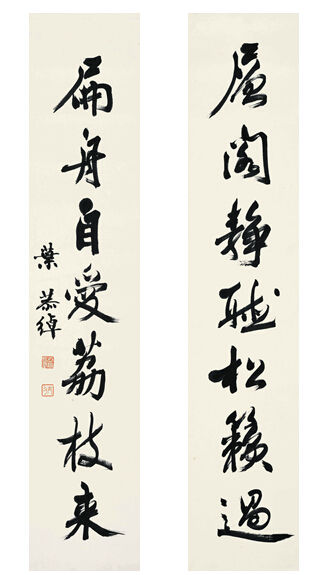 層閣靜聽松籟過
扁舟自愛荔枝来
葉恭綽